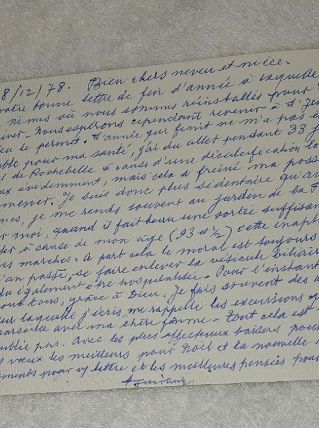 8/12/78. Bien chers neveu et nièce.
otre bonne lettre de fin d'année à laquelle
Nîmes où nous sommes réinstallés pour
iver. Nous espérons cependant revenir à S' Je
eu le permet. L'année qui finit ne m'a pas é
ble pour ma santé, j'ai du aller pendant 33 j
l de Rochebelle à cause d'une décalcification
ux évidemment, mais cela a freiné ma poss
mener. Je suis donc plus sédentaire qu'a
mes, je me rends souvent au jardin de la F
r moi, quand il fait beau une sortie suffisan
der à cause de mon âge (93 et ½) cette inapt
es marches. A part cela le moral est toujours
'an passé, se faire enlever la vésicule biliaire
du également être hospitalisée. Pour l'instant
ous tous, grâce à Dieu. Je fais souvent des
ur laquelle j'écris, me rappelle les excursions q
arseille avec ma chère femme. Tout cela est
ublie pas. Avec les plus affectueux baisers pour
s vœux les meilleurs pour Noël et la nouvelle
ments pour vp lettre et les meilleures pensées pour